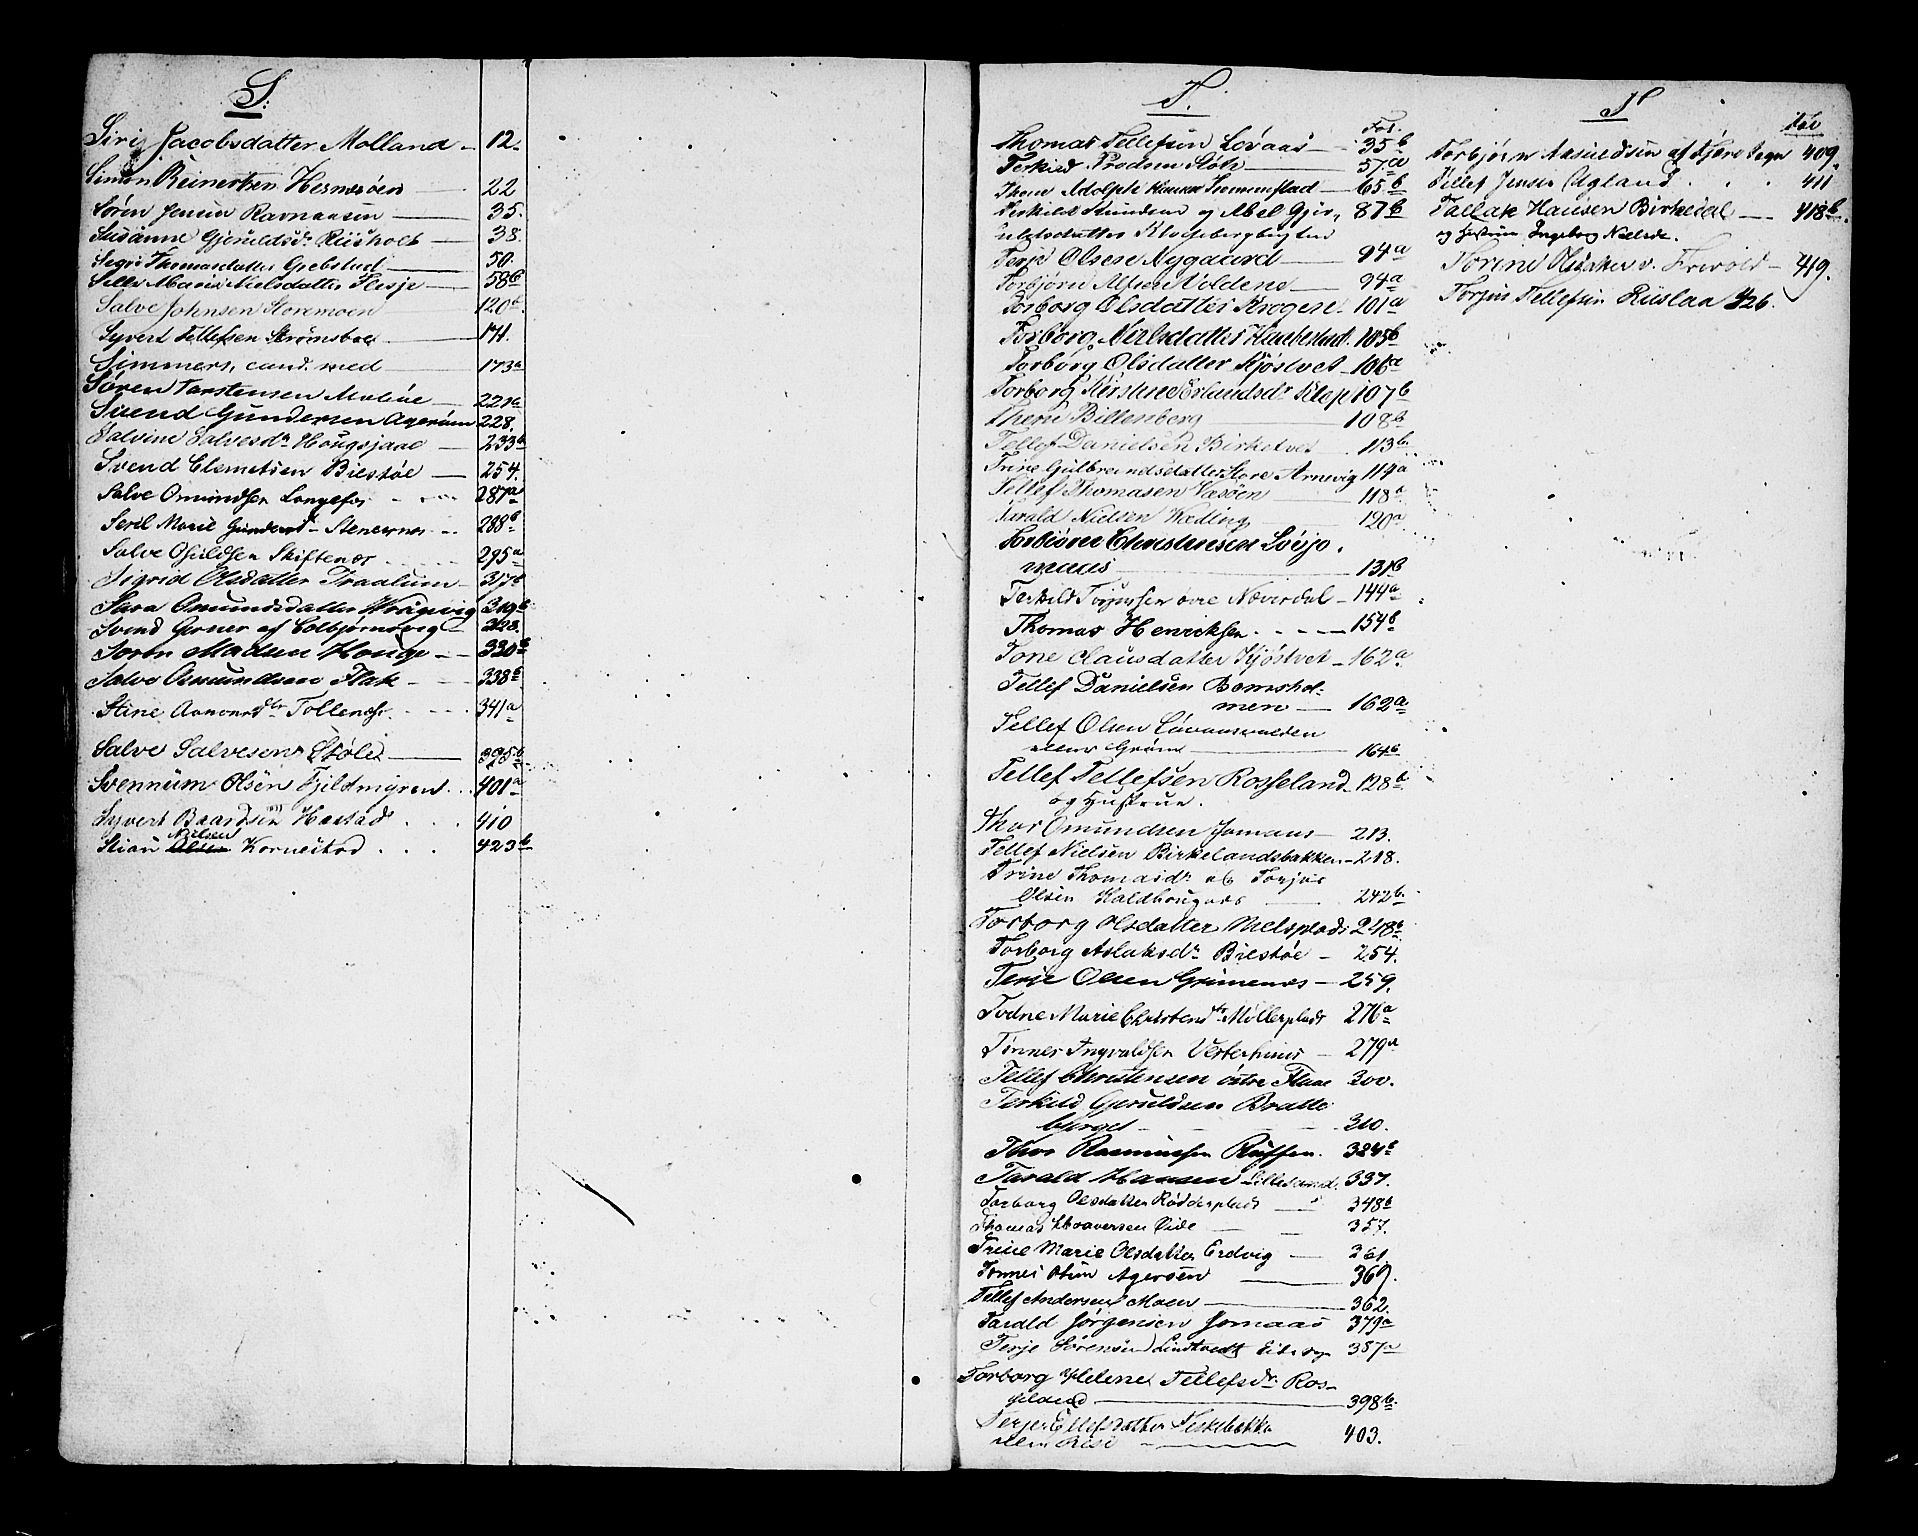 S.
Siri Jacobsdatter Molland 12.
Simon Reinertsen Hesnesøen 22
Søren Jensen Ravnaasen 35.
Susanne Gjeruldsdr Riisholt 38.
Segri Thomasdatter Grebstad 50.
Sille Marie Nielsdatter Flesje 58b
Salve Johnsen Storemoen 120b.
Syvert Tellefsen Strømsboe 171.
Simmers, cand. med 173a
Søren Torstensen Moløe 221a
Svend Gundersen Agerøen 228.
Salvine Salvesdr Hougsjaae 233a
Svend Clemetsen Biestøe 254.
Salve Omundsen Langefos 287a
Seril Marie Gundersd. Stenersnes 288b
Salve Osuldsen Skiftenæs 295a
Sigrid Olsdatter Traalum 317b
Sara Omundsdatter Worgevig 319b
Svend Gerner af Colbjørnsvig 328.
Søren Madsen Houge 330b
Salve Omundsen Flak 338b
Stine Aanonsdtr Tollenæs 341a
Salve Salvesen Støle 395b
Svennum Olsen Fjeldmyren 401a
Syvert Baardsen Hastad 410
Stian Olsen Nielsen Kornestad 423b
T.
Fol.
Thomas Tellefsen Lovaas 35b
Terkild Støle 57a
Thom Adolph Hansen Trommestad 65b
Terkild Amundsen og Abel Gjer- 87b
uldsdatter Klogebergbugten
Terje Olsen Nygaard 94a
Torbjørn Alfsen Voldene 94a
Torborg Olsdatter Krogene 101a
Torborg Nielsdatter Hauftestad. 105b
Torborg Olsdatter Kjøstvet 106a
Torborg Kirstine Erlandsdr 107b
Therie Billenberg 108b
Tellef Danielsen Birketvet 113b.
Trine Gulbrandsdatter Store Arnevig 114a
Tellef Thomasen Væsøen 118a
Tarald Nielsen Vædling 120a
Torbiørn Christensen Lovjo-
maas 131b
Terkild Torjussen øvre Næverdal 144a
Thomas Henriksen 154b
Tone Clausdatter Kjøstvet 162a
Tellef Danielsen Bomshol-
men 162a
Tellef Olsen Løvaasvolden
eller Grøm 164b
Tellef Tellefsen Rosseland 128a
og Hustrue.
Thor Omundsen Jomaas 213.
Tellef Nielsen Birkelandsbakken 218.
Trine Thomasdr og Torjus
Olsen Kaldhougens 242b.
Torborg Olsdatter Melsplads 248b
Torborg Aslaksdr Biestøe 254.
Terje Olsen Grimenæs 259.
Todne Marie Christensdtr Møllerplads 276a
Tønnes Ingvaldsen Vesterhuus 279a
Tellef Christensen østre Flaae 300.
Terkild Gjeruldsen Bratte
bjerget 310.
Thor Rasmussen Ruffen. 324b
Tarald Hansen Lillesand. 337.
Torborg Olsdatter Rødderplads 348b
Thomas Haaversen Vide 357.
Trine Marie Olsdatter Erdvig 361
Tønnes Olsen Agerøen 369.
Tellef Andersen Moen 362.
Tarald Jørgensen Jomaas 379a
Terje Sørensen Lindtvedt Eide sogn 387a
Torborg Helene Tellefsdr. Ros-
seland 398b.
Terjer Ellefsdatter Neskilbakka
eller Risi 403.
T
Fol
Torbjørn Aasuldsen af Fjære Sogn 409.
Tellef Jensen Ugland 411
Tallak Hansen Birkedal 418b.
og Hustrue Ingeborg Nielsdr.
Torine Olsdatter v. Frivold 419.
Torjus Tellefsen Riislaa 426.